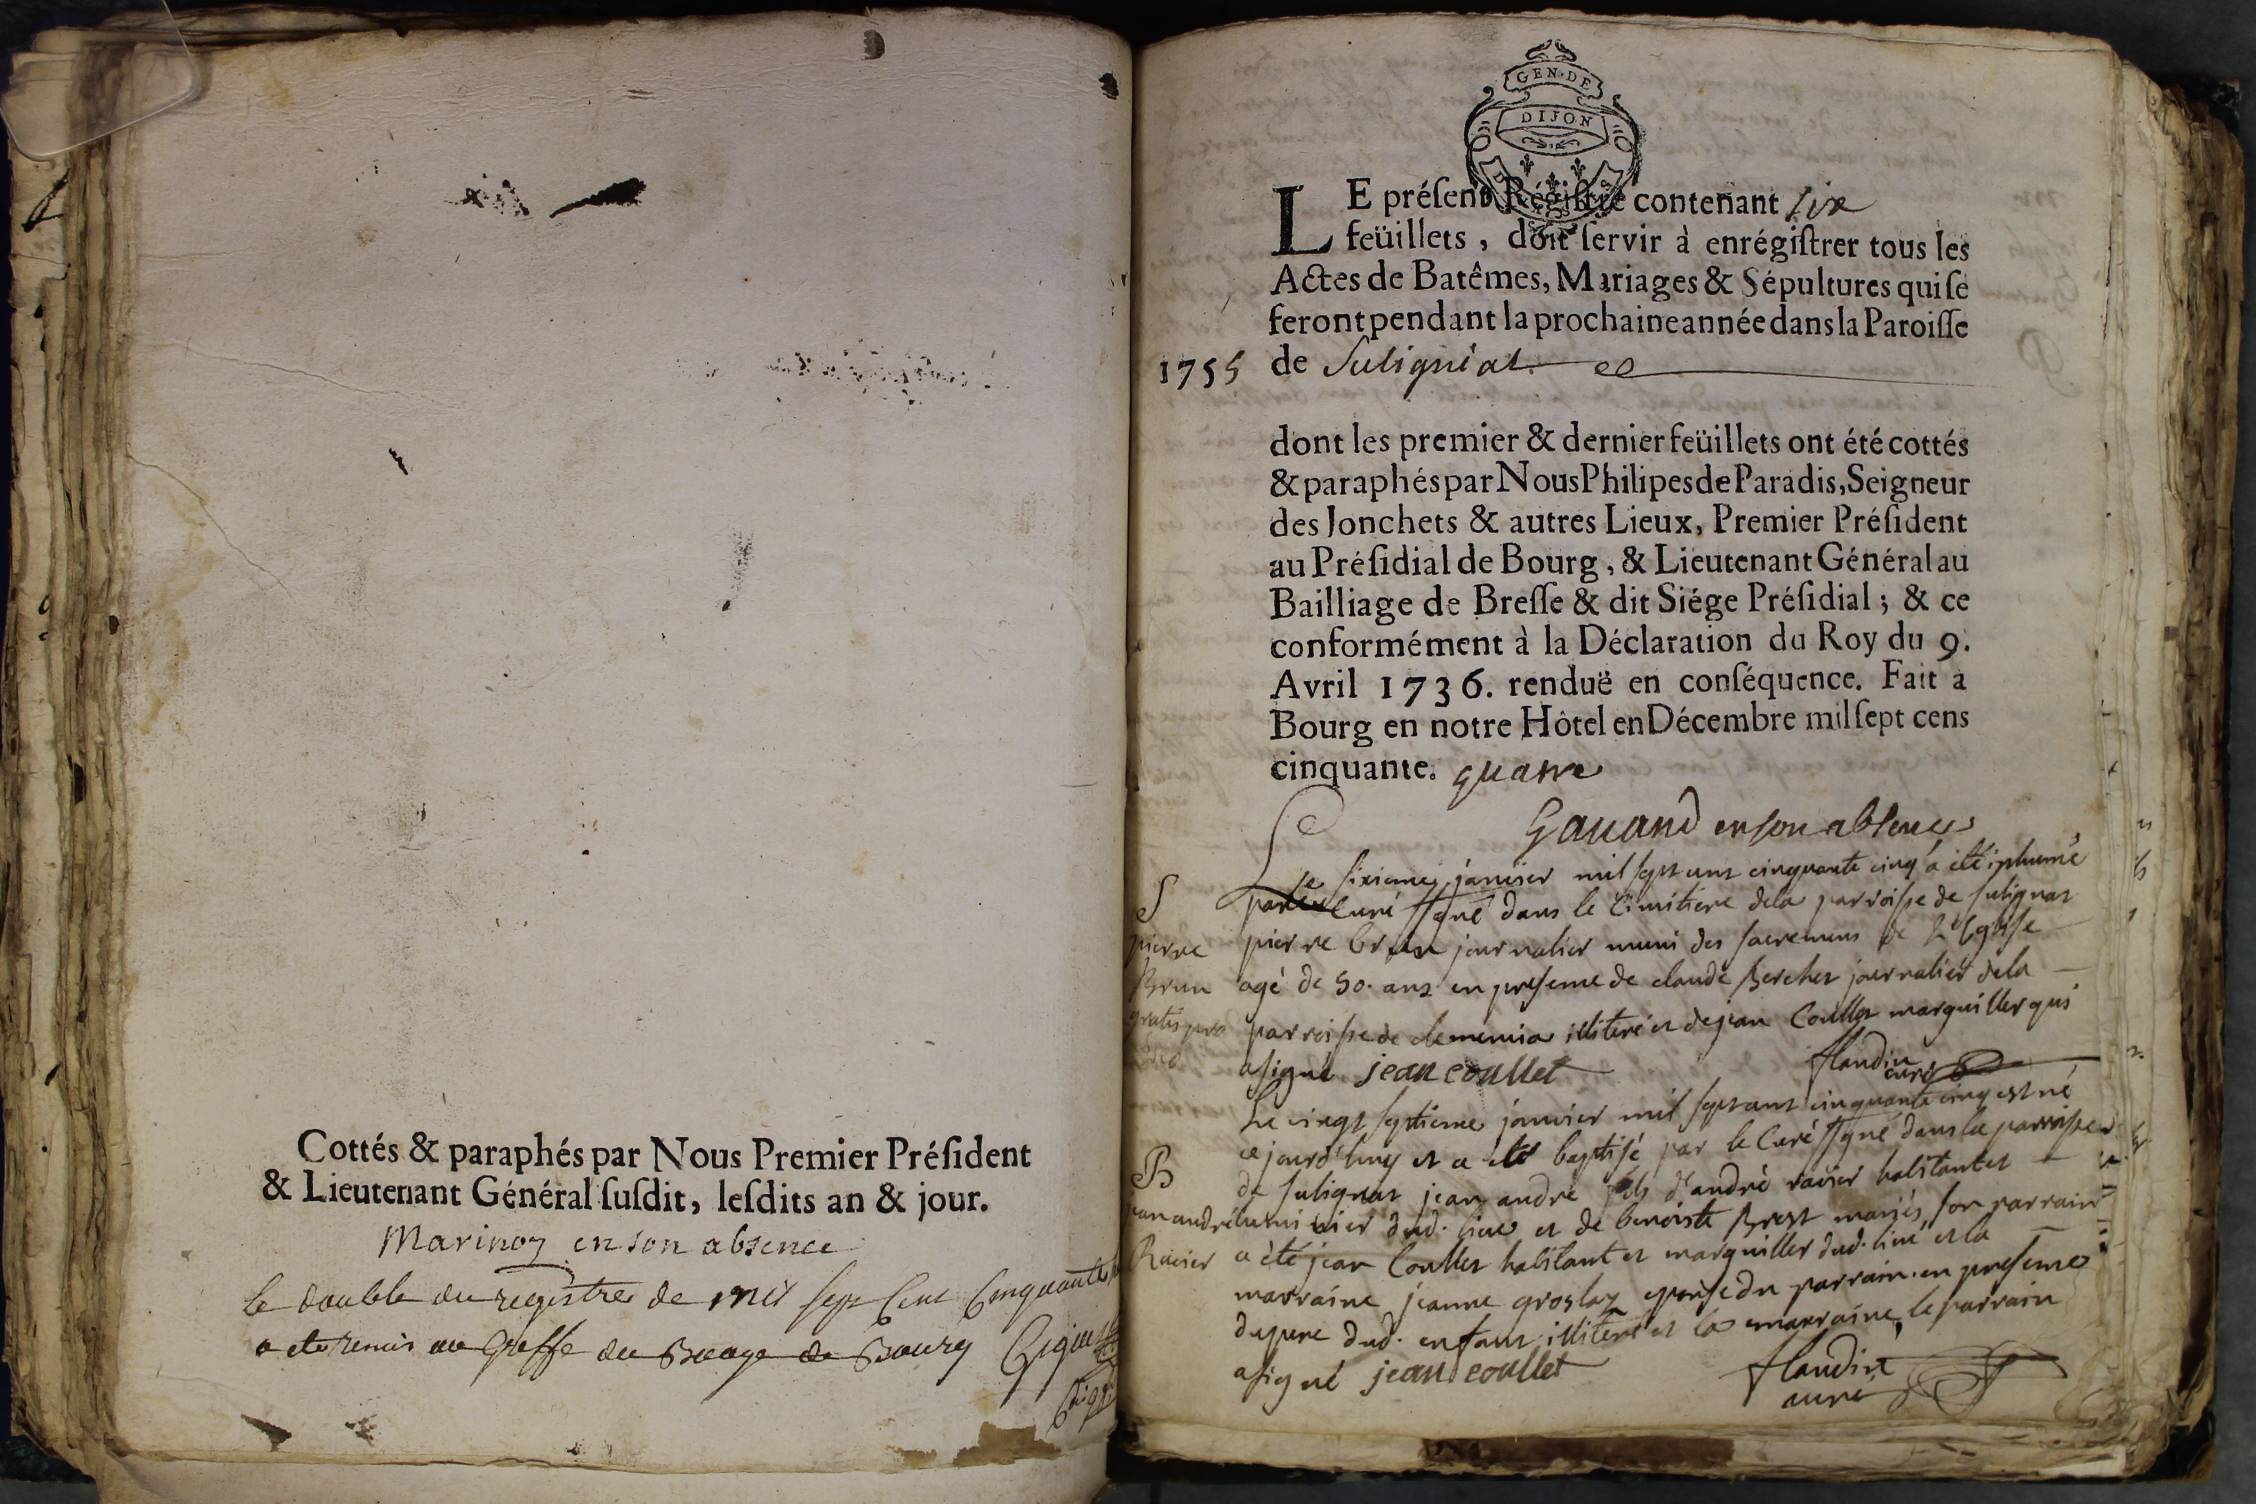 Cottés & paraphés par Nous Premier Préſident
& Lieutenant Général ſuſdit, leſdits an & jour.
Marinon en son absence
le double du registre de mil sept Cent Cinquante
a ete remis au Greffe du Baage de Bourg
GEN·DE
DIJON
LE préſent Régiſtre contenant six
feüillets, doit ſervir à enrégiſtrer tous les
Actes de Batêmes, Mariages & Sépultures qui ſe
feront pendant la prochaine année dans la Paroiſſe
1755 de Suligniat
dont les premier & dernier feüillets ont été cottés
& paraphés par Nous Philipes de Paradis, Seigneur
des Jonchets & autres Lieux, Premier Préſident
au Préſidial de Bourg, & Lieutenant Général au
Bailliage de Breſſe & dit Siége Préſidial; & ce
conformément à la Déclaration du Roy du 9.
Avril 1736. renduë en conſéquence. Fait a
Bourg en notre Hôtel en Décembre mil ſept cens
cinquante. quatre
Gauand en son absence
S
pierre
Brun
gratis pro
deo
Le sixieme janvier mil sept cent cinquante cinq a été inhumé
par le Curé ssgné dans le Cimitiere dela parroisse de sulignat
pierre brun journalier muni des sacremens de l'eglise
agé de 50. ans en presence de claude Berchet journalier dela
parroisse de clemencia illiteré et de jean Coullet marguiller qui
a signé jean coullet
flandin
curé
B
jean andré
Ravier
Le vingt septieme janvier mil sept cent cinquante cinq est né
cejourd'huy et a eté baptisé par le Curé ssgné dans la parroisse
de sulignat jean andre fils d'andré ravier habitant et
luminier dud. lieu et de benoiste Brest mariés, son parrain
a été jean Coullet habitant et marguiller dud. lieu et la
marraine jeanne groslay epouse du parrain. en presence
du pere dud. enfant illiteré et la marraine, le parrain
a signé jean coullet
flandin
curé